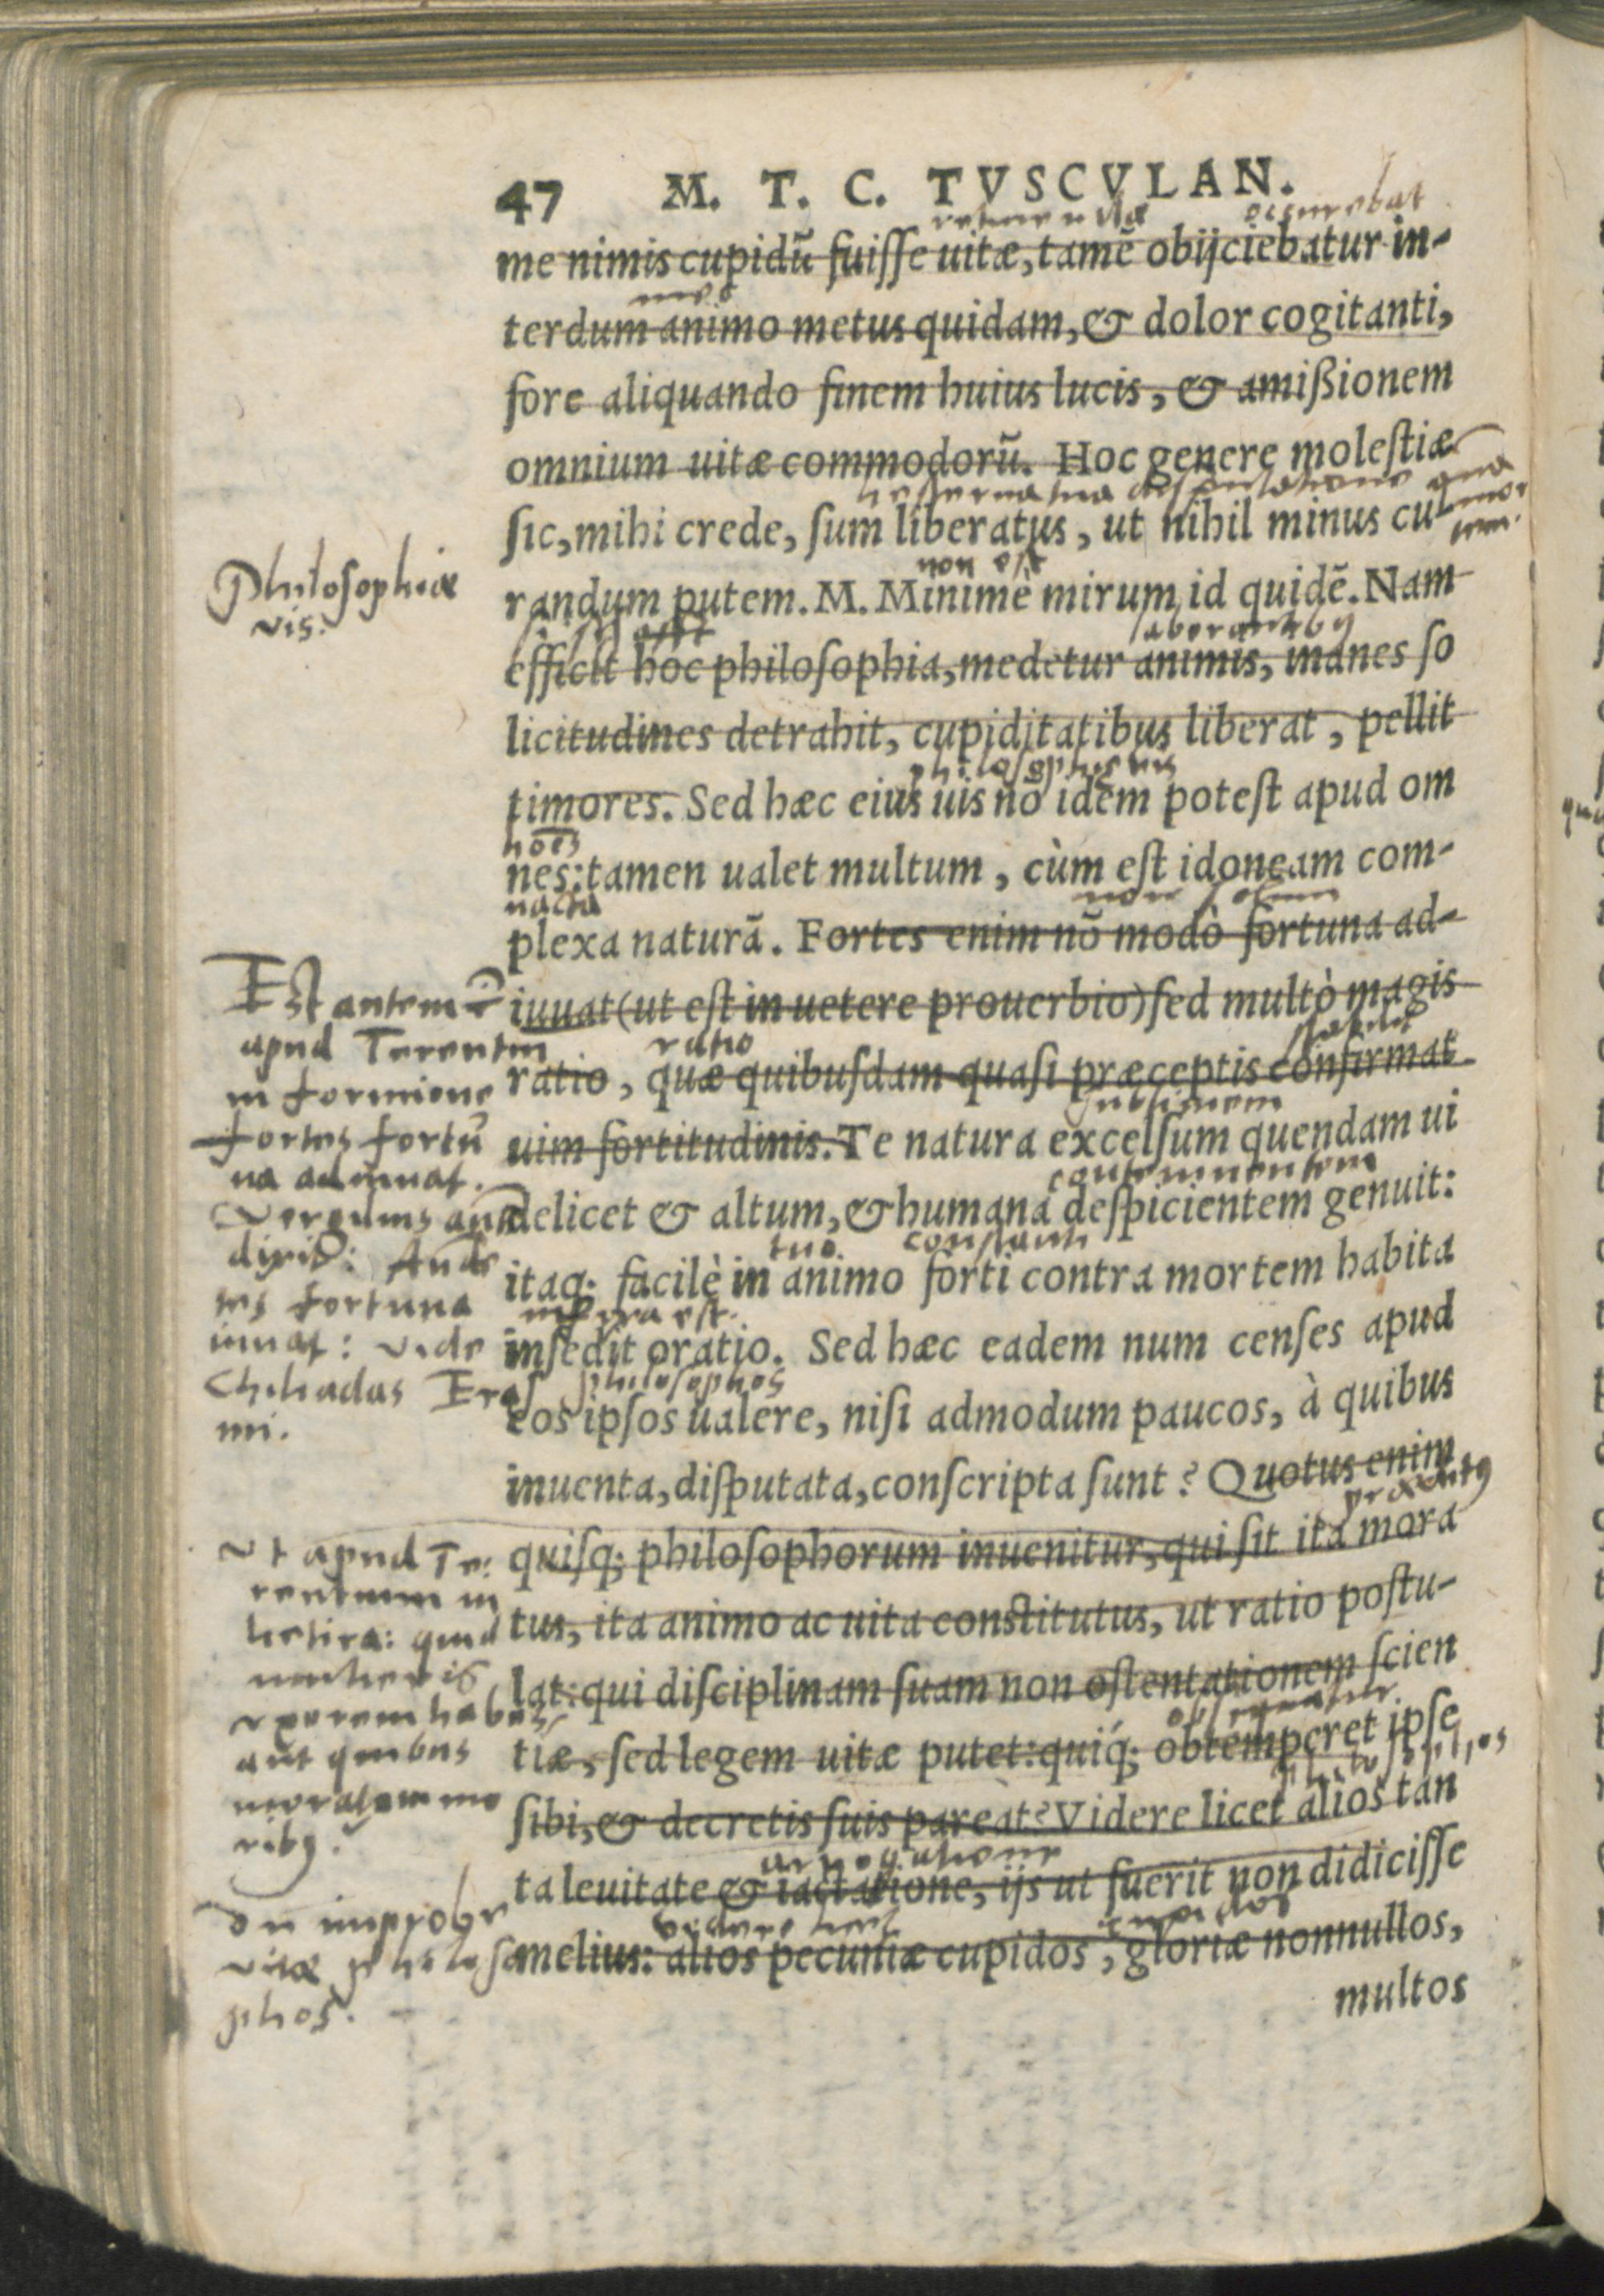 47 M. T. C. TVSCVLAN.
occurrebat
me nimis cupidũ fuiſſe uitæ, tamẽ obijciebatur in-
meo
terdum animo metus quidam, & dolor cogitanti,
fore aliquando finem huius lucis, & amißionem
omnium uitæ commodorũ. Hoc genere moleſtiæ
hesterna tua disputatione
ſic, mihi crede, ſum liberatus, ut nihil minus cu-
non est
Philosophiæ
vis.
randum putem. M. Minimè mirum id quidẽ. Nam
efficit hoc philoſophia, medetur animis, inanes ſo
licitudines detrahit, cupiditatibus liberat, pellit
philosophiæ vis
timores. Sed hæc eius uis nõ idem poteſt apud om
nes: tamen ualet multum, cùm eſt idoneam com-
nacta
non solum
plexa naturã. Fortes enim nõ modò fortuna ad-
iuuat (ut eſt in uetere prouerbio) ſed multò magis
ratio
ratio, quæ quibuſdam quaſi præceptis confirmat
sublimem
uim fortitudinis. Te natura excelſum quendam ui
contemnentem
delicet & altum, & humana deſpicientem genuit:
tuo constanti
itaq; facilè in animo forti contra mortem habita
inſedit oratio. Sed hæc eadem num cenſes apud
philosophos
eos ipſos ualere, niſi admodum paucos, à quibus
inuenta, diſputata, conſcripta ſunt? Quotus enim
quiſq; philoſophorum inuenitur, qui ſit ita mora
tus, ita animo ac uita conſtitutus, ut ratio poſtu-
lat: qui diſciplinam ſuam non oſtentationem ſcien
tiæ, ſed legem uitæ putet: quiq́; obtemperet ipſe
philosophos
ſibi, & decretis ſuis pareat? Videre licet alios tan
arrogatione
ta leuitate & iactatione, ijs ut fuerit non didiciſſe
videre licet cupidos
melius: alios pecuniæ cupidos, gloriæ nonnullos,
multos
Est autem
apud Terentiu
in formione
fortes fortũ
na adiuuat.
Auden
tes fortuna
iuuat: vide
Chiliadas Eras
mi.
Vt apud Te:
rentium in
hecira: quid
mulieris
uxorem habes
aut quibus
moratam mo
ribꝰ?
phos.